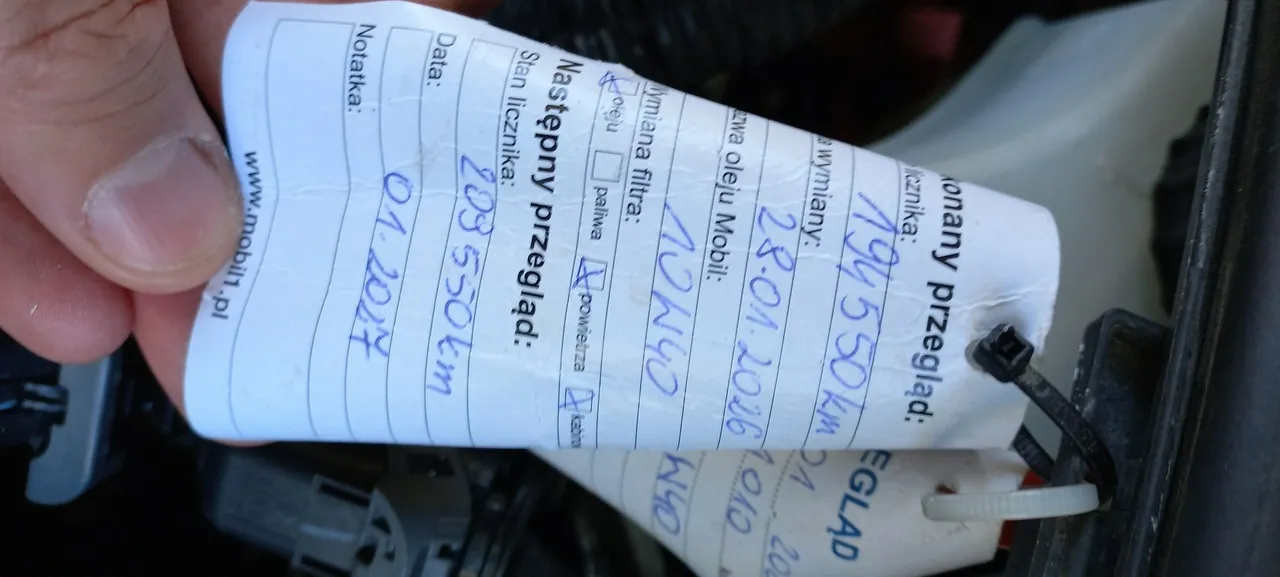 konany przegląd:
licznika:
194550km
a wymiany:
28.01.2026
zwa oleju Mobil:
10W40
ymiana filtra:
oleju paliwa powietrza kabina
Następny przegląd:
Stan licznika:
209550km
Data:
01.2027
Notatka:
www.mobil1.pl
EGLĄD
01. 20
1010
W40